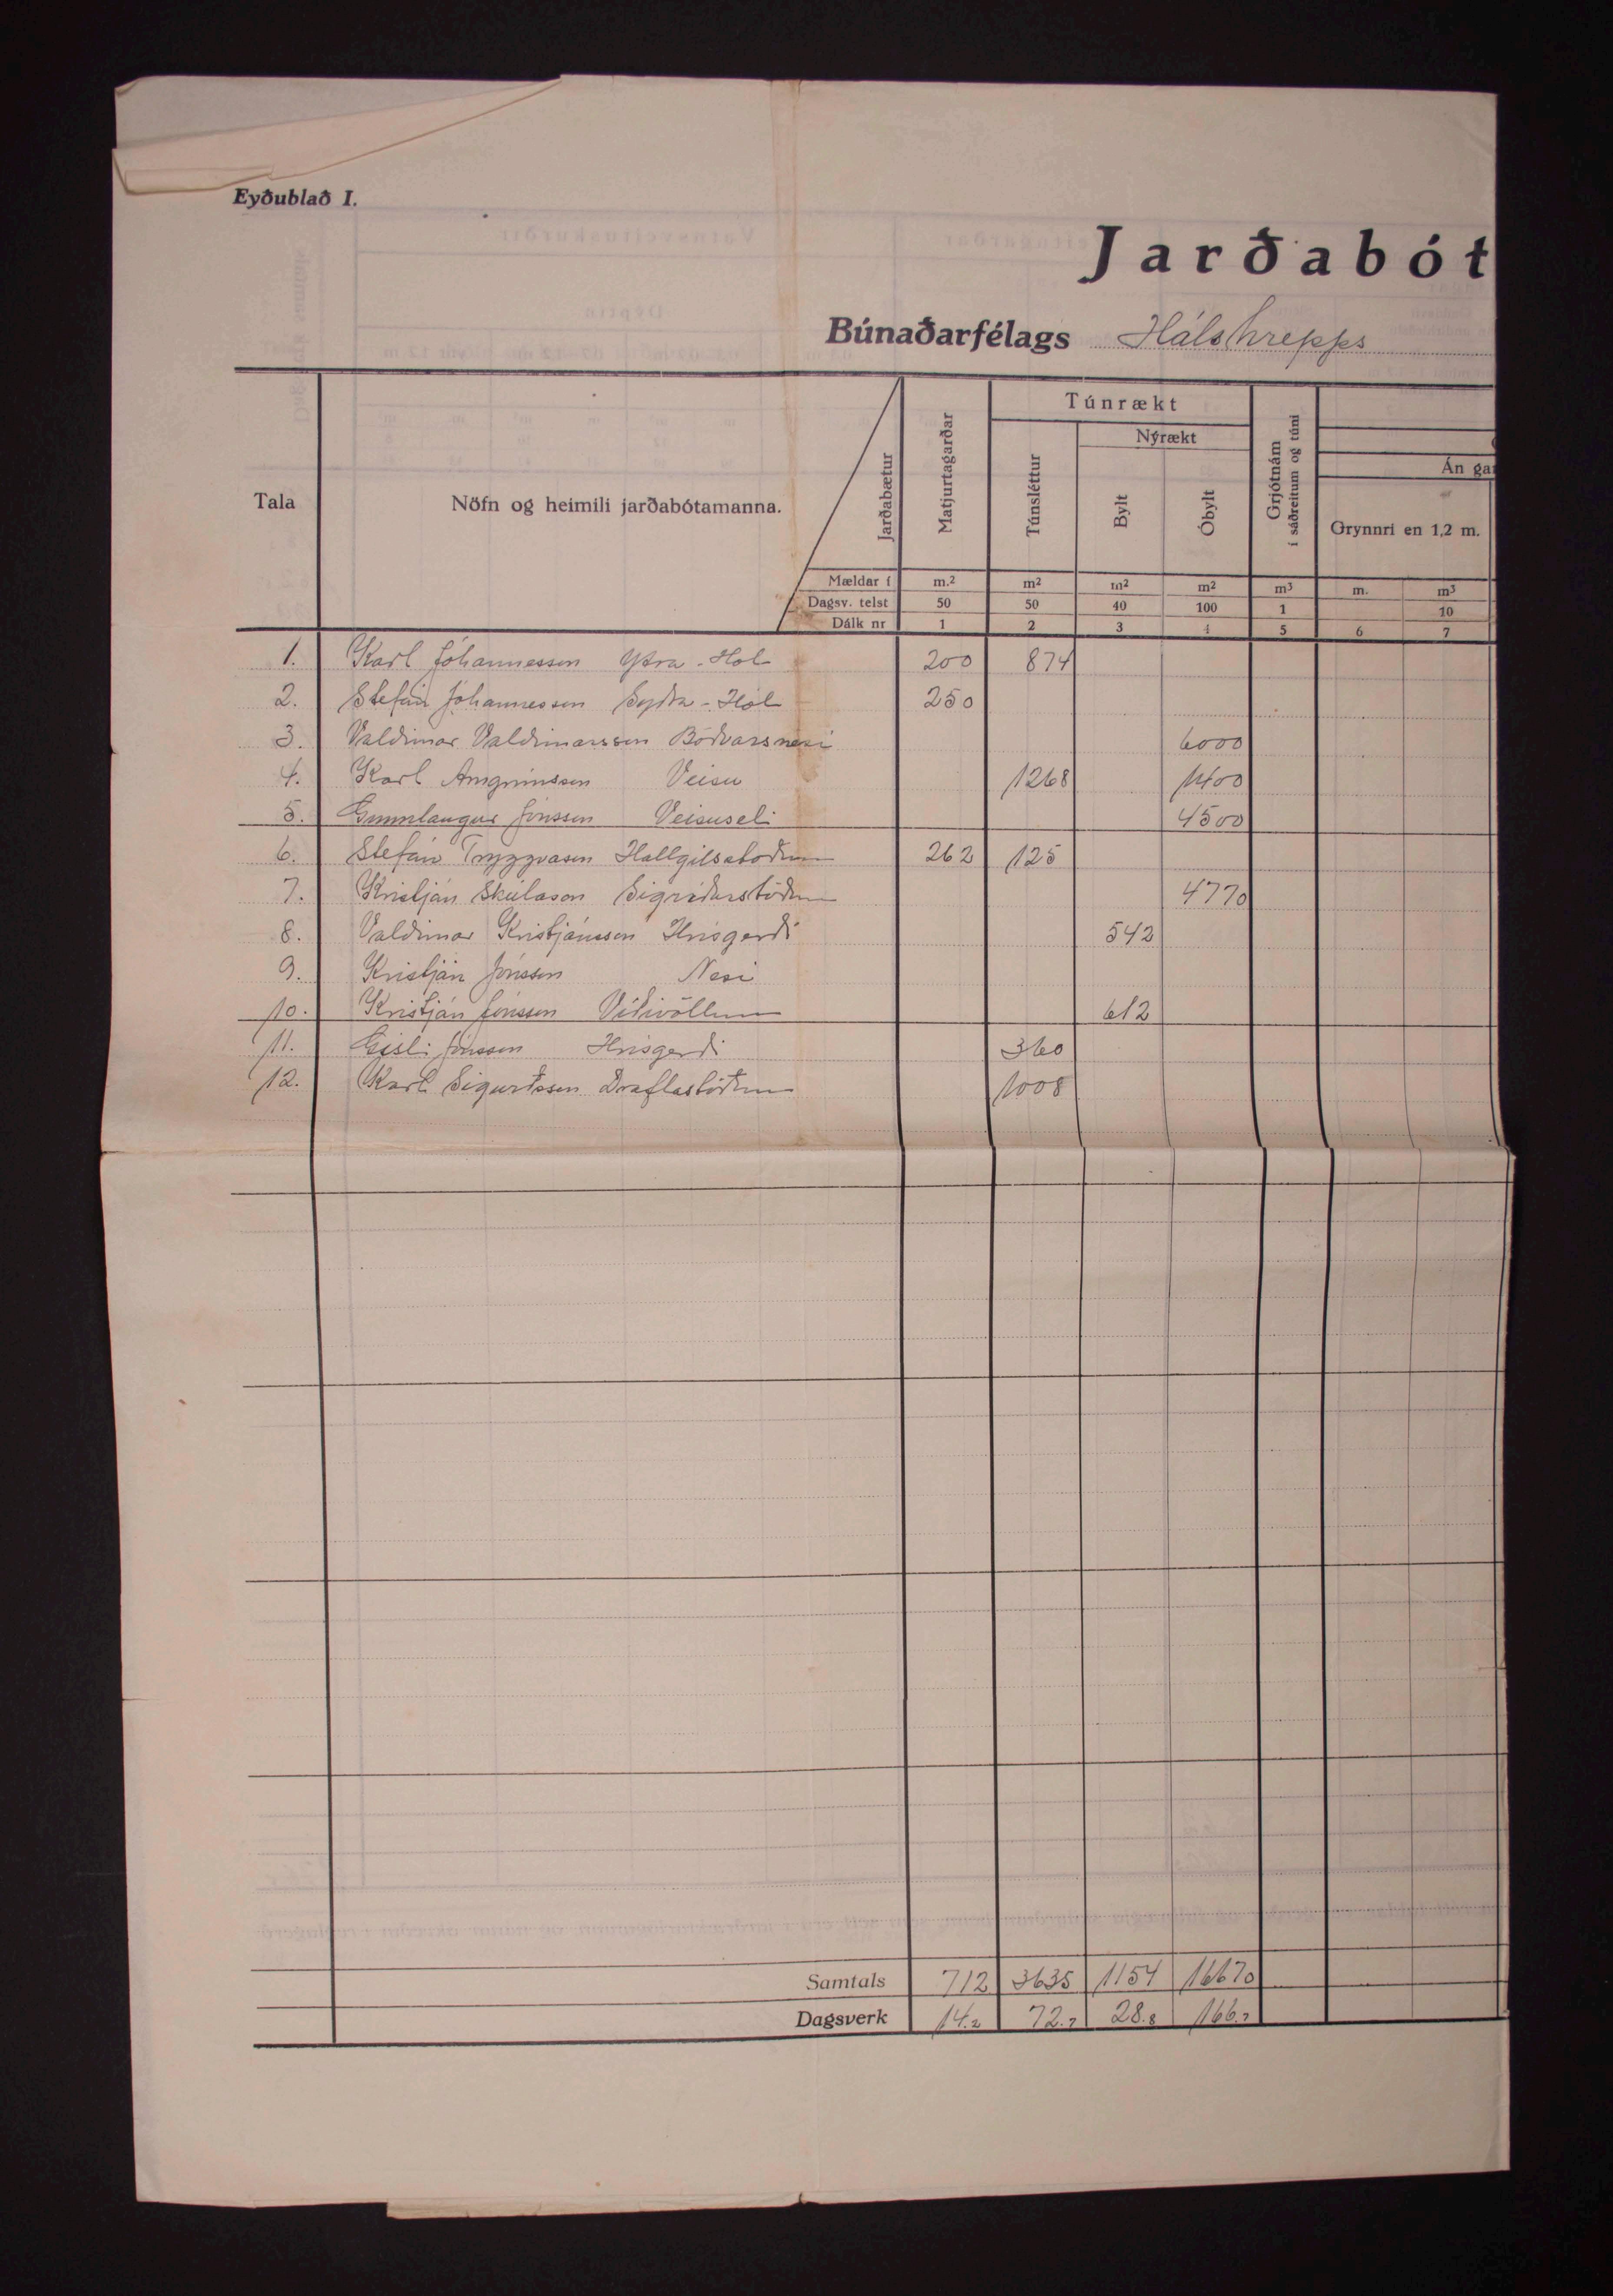 Eyðublað I.
Jarðabót
Búnaðarfélags Hálshrepps
Tala
Nöfn og heimili jarðabótamanna.
Jarðabætur
Matjurtagarðar
Túnrækt
Túnsléttur
Nýrækt
Bylt
Óbylt
Grjótnám í sáðreitum og túni
Án gar
Grynnri en 1,2 m.
Mældar í m.² m² m² m² m³ m. m³
Dagsv. telst 50 50 40 100 1 10
Dálk nr 1 2 3 4 5 6 7
1. Karl Jóhannesson Ytra-Hól 200 874
2. Stefán Jóhannesson Syðra-Hól 250
3. Valdimar Valdimarsson Böðvarsnesi 6000
4. Karl Arngrímsson Veisu 1268 1400
5. Gunnlaugur Jónsson Veisuseli 4500
6. Stefán Tryggvason Hallgilsstöðum 262 125
7. Kristján Skúlason Sigríðarstöðum 4770
8. Valdimar Kristjánsson Hrísgerði 542
9. Kristján Jónsson Nesi
10. Kristján Jónsson Víðivöllum 612
11. Gísli Jónsson Hrísgerði 360
12. Karl Sigurðsson Draflastöðum 1008
Samtals 712 3635 1154 16670
Dagsverk 14.2 72.7 28.8 166.7